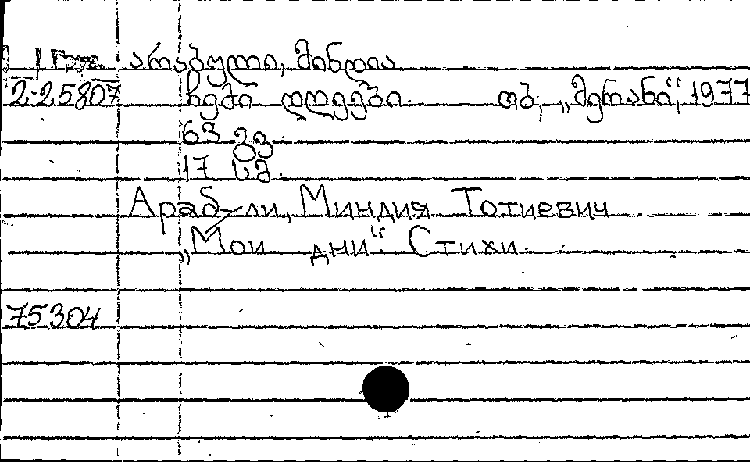 არაბული, მინდია
2-25807 ჩემი დღეები. თბ, „მერანი“, 1977
63 გვ
17 სმ.
Араб-ли, Миндия Тотиевич
„Мои дни“. Стихи.
75304